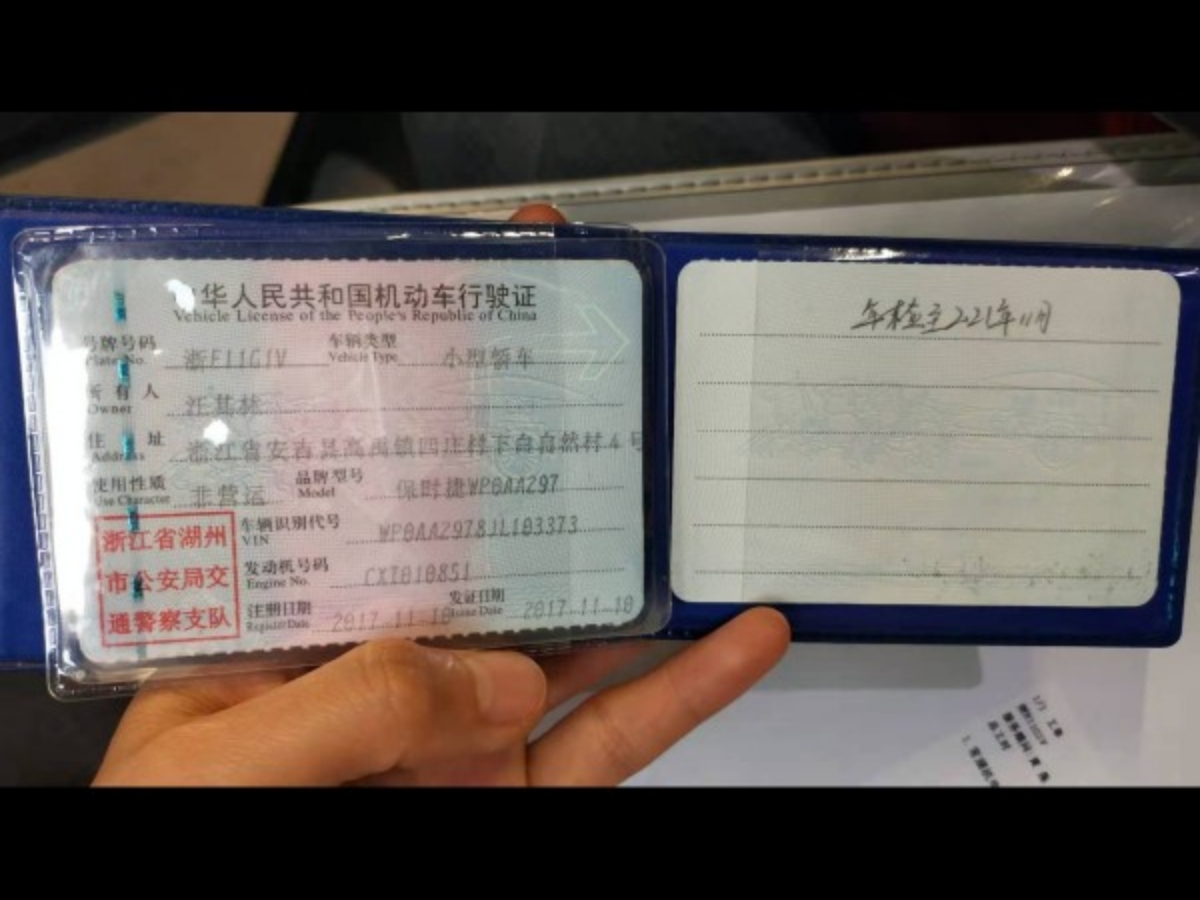 中华人民共和国机动车行驶证
Vehicle License of the People's Republic of China
号牌号码 浙E11G1V 车辆类型 小型轿车
Plate No. Vehicle Type
所有人 汪其林
Owner
住址 浙江省安吉县高禹镇四庄村下自然村4号
Address
使用性质 非营运 品牌型号 保时捷WP0AA297
Use Character Model
浙江省湖州
市公安局交
通警察支队
车辆识别代号 WP0AA2978JL103373
VIN
发动机号码 CXT010851
Engine No.
注册日期 2017-11-10 发证日期 2017-11-10
Register Date Issue Date
年检至221年11月